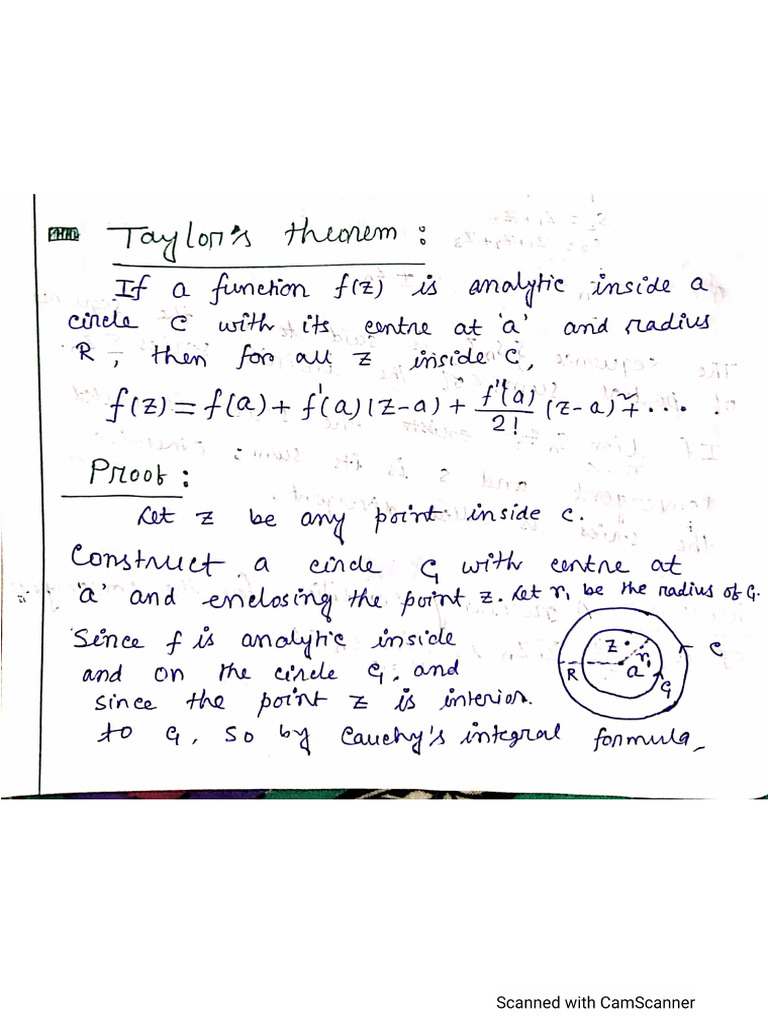 Taylor's theorem :
If a function f(z) is analytic inside a
circle C with its centre at 'a' and radius
R, then for all z inside C,
f(z) = f(a) + f'(a)(z-a) + f''(a)/2! (z-a)² + ....
Proof :
Let z be any point inside C.
Construct a circle C₁ with centre at
'a' and enclosing the point z. Let r₁ be the radius of C₁.
Since f is analytic inside
and on the circle C₁, and
since the point z is interior
to C₁, so by Cauchy's integral formula,
z r₁ C
R a C₁
Scanned with CamScanner